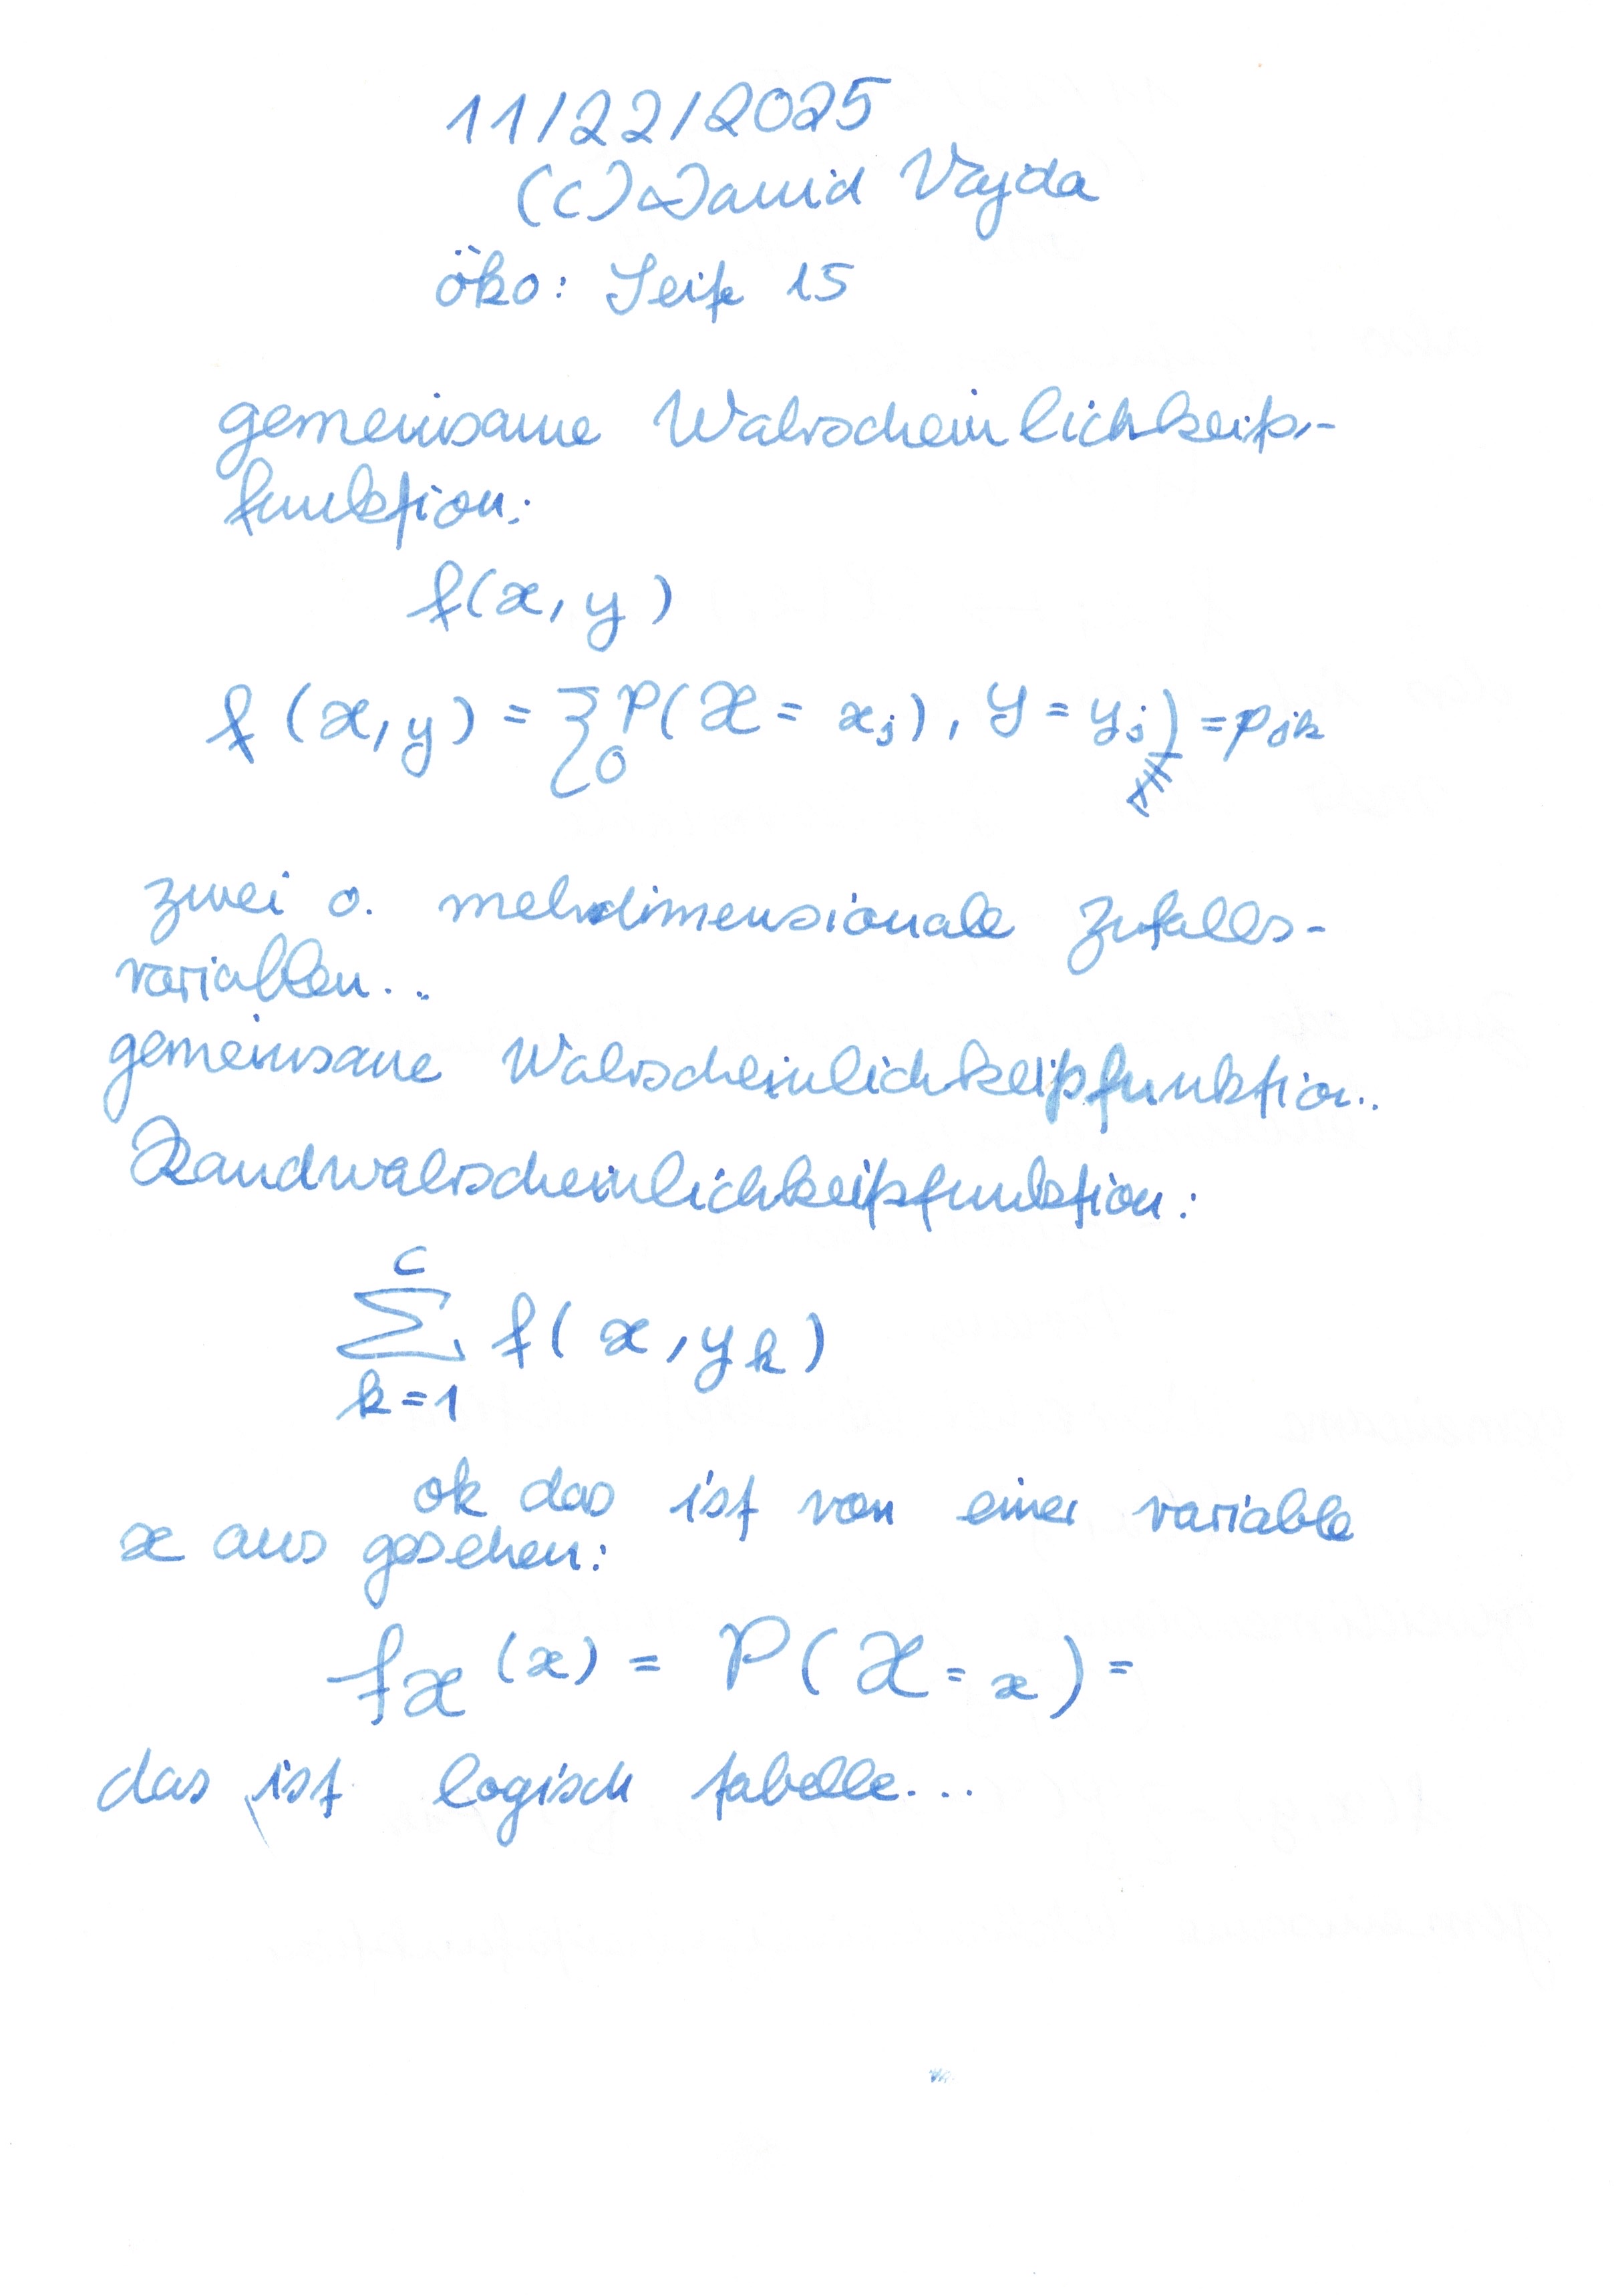 11/22/2025
(C) David Vajda
öko: Seite 15
gemeinsame Wahrscheinlichkeits-
funktion:
f(x, y)
f(x, y) = { P(X = xj), Y = yj) = pjk
0
zwei o. mehrdimensionale Zufalls-
variablen..
gemeinsame Wahrscheinlichkeitsfunktion..
Randwahrscheinlichkeitsfunktion:
c
∑ f(x, yk)
k=1
ok das ist von einer variable
x aus gesehen:
fX(x) = P(X = x) =
das ist logisch tabelle...